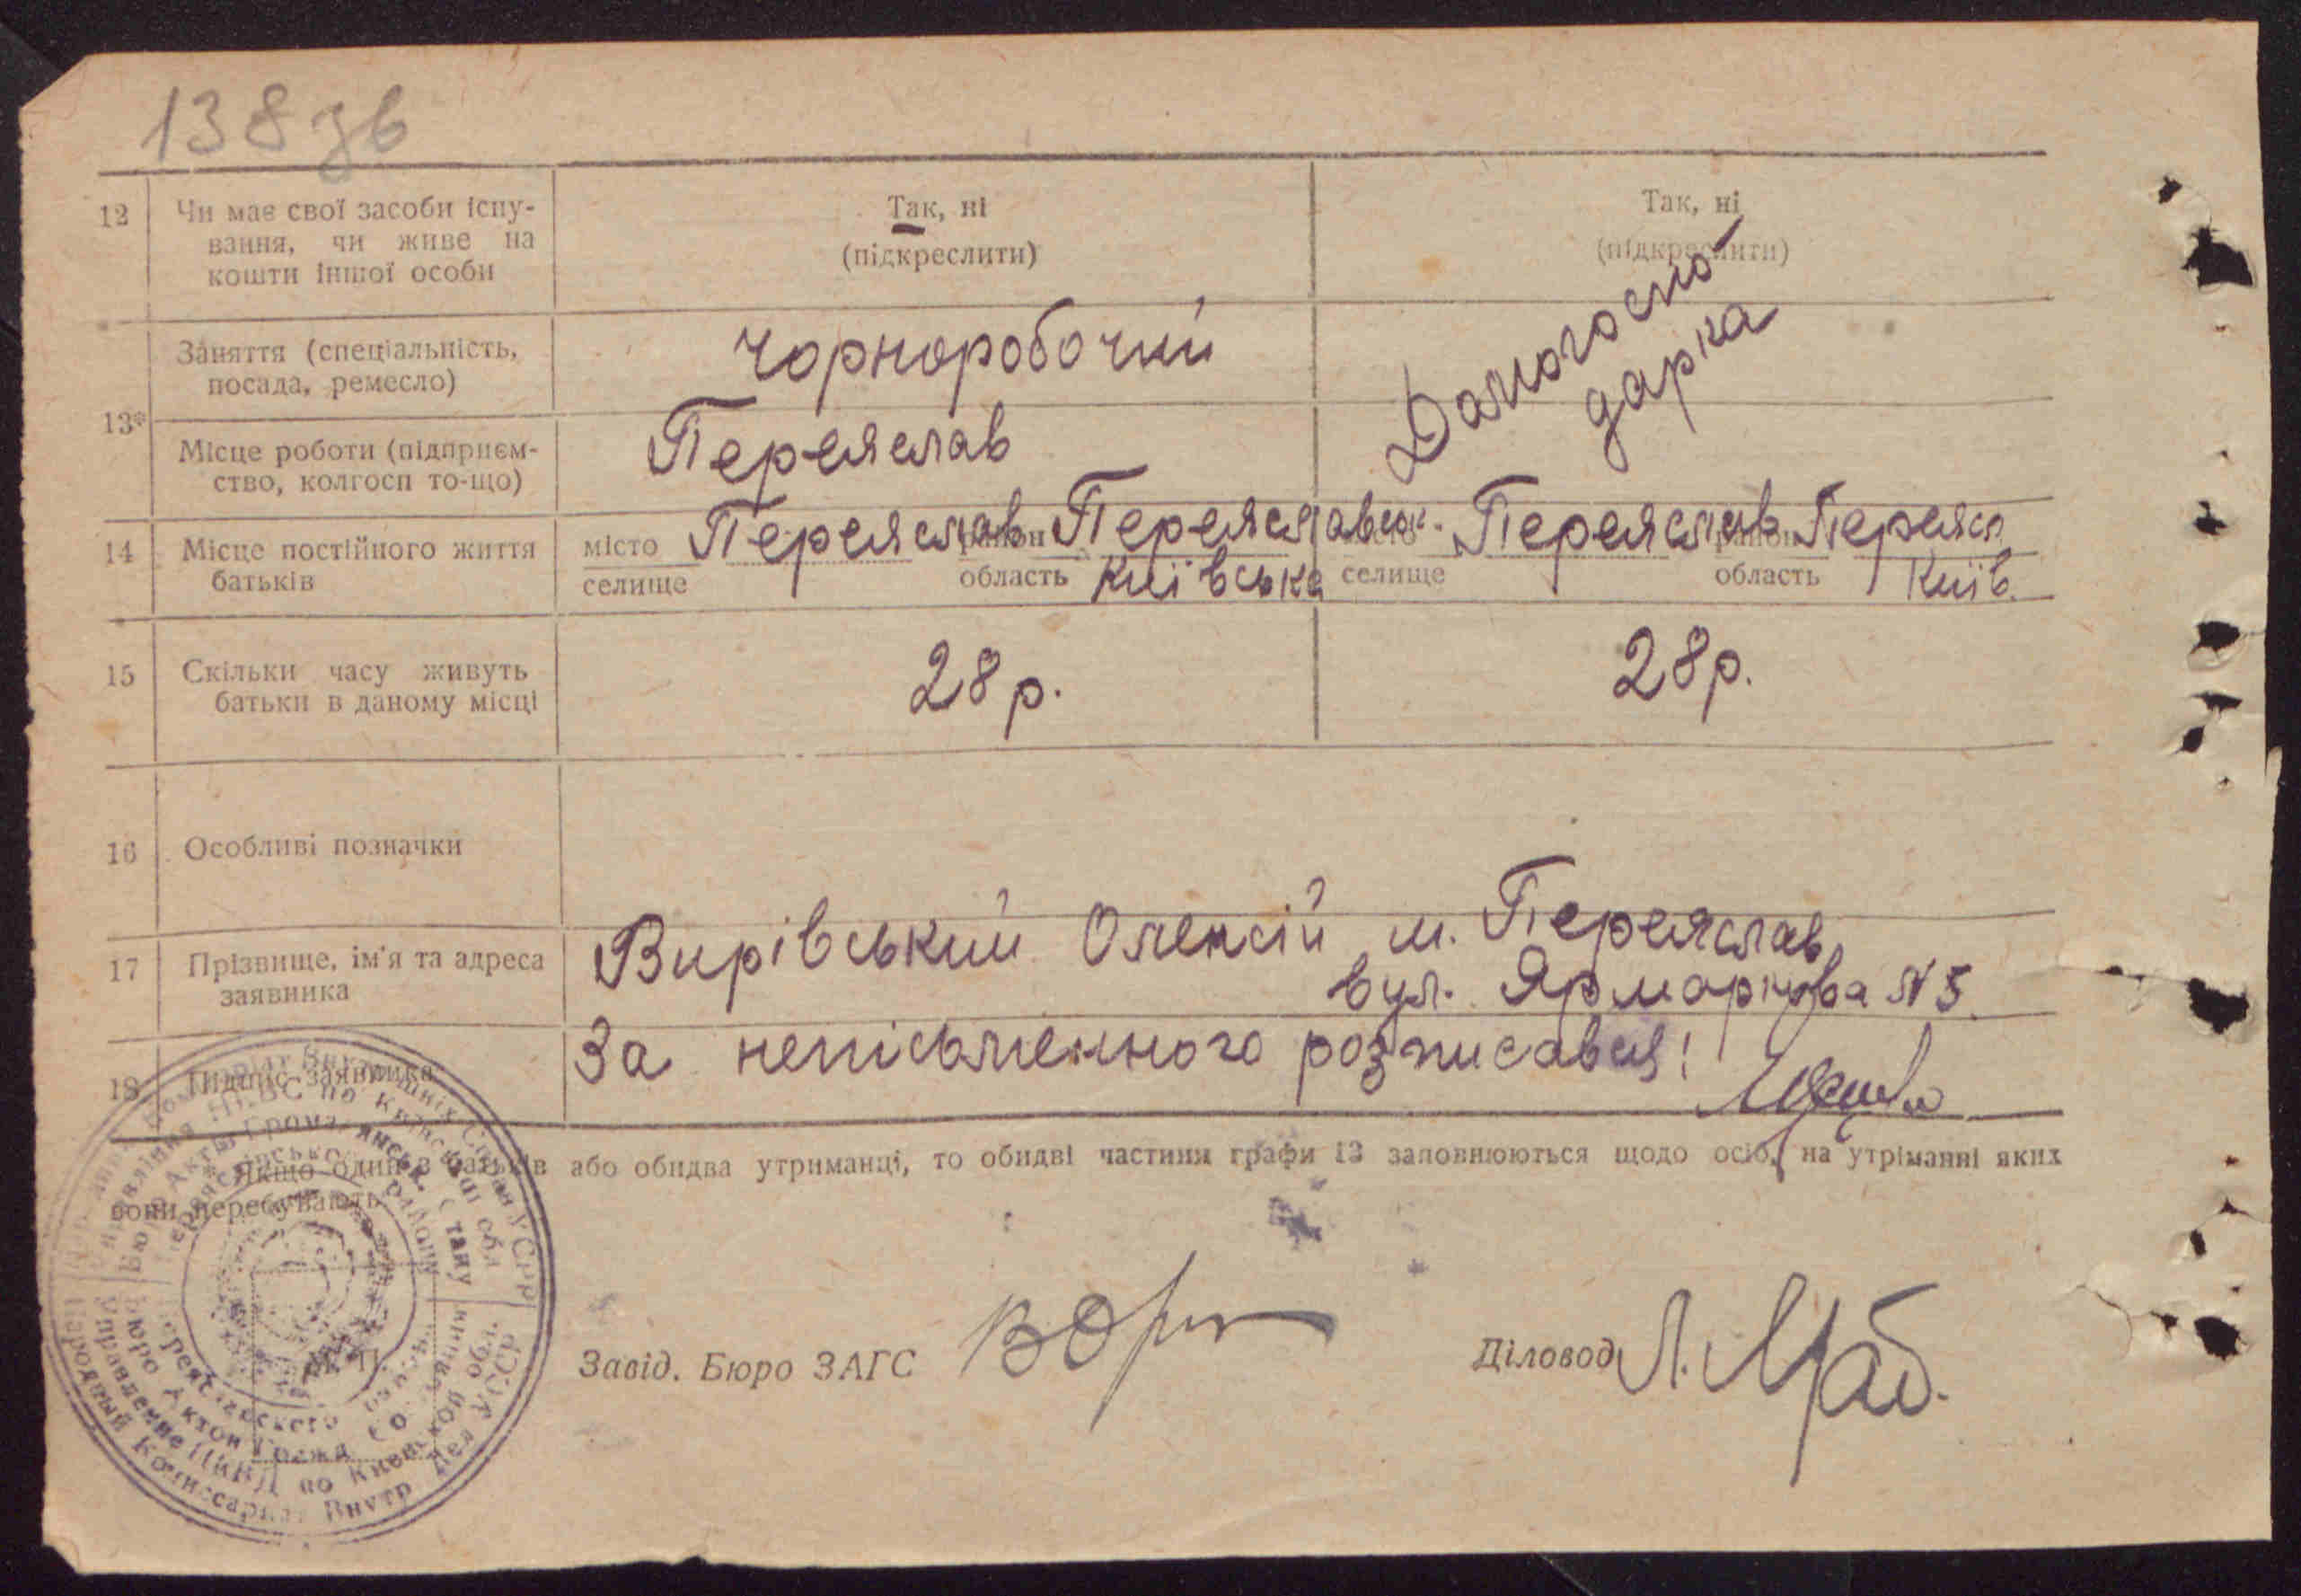 138 зв
12 Чи має свої засоби існу-
вання, чи живе на
кошти іншої особи
Так, ні
(підкреслити)
Так, ні
(підкреслити)
13*
Заняття (спеціальність,
посада, ремесло)
чорноробочий
Домогоспо
дарка
Місце роботи (підприєм-
ство, колгосп то-що)
Переяслав
14 Місце постійного життя
батьків
місто Переяслав район Переяславськ.
селище область Київська
місто Переяслав район Переясл
селище область Київ.
15 Скільки часу живуть
батьки в даному місці
28 р.
28 р.
16 Особливі позначки
17 Прізвище, ім'я та адреса
заявника
Вирівський Олексій м. Переяслав
вул. Ярмаркова № 5
18 Підпис заявника
За неписьменного розписався!
* Якщо один з батьків або обидва утриманці, то обидві частини графи 13 заповнюються щодо осіб, на утріманні яких
вони перебувають
Завід. Бюро ЗАГС
Діловод
Народный Комиссариат Внутр Дел УССР
Управление НКВД по Киевской обл.
Бюро Актов Гражд